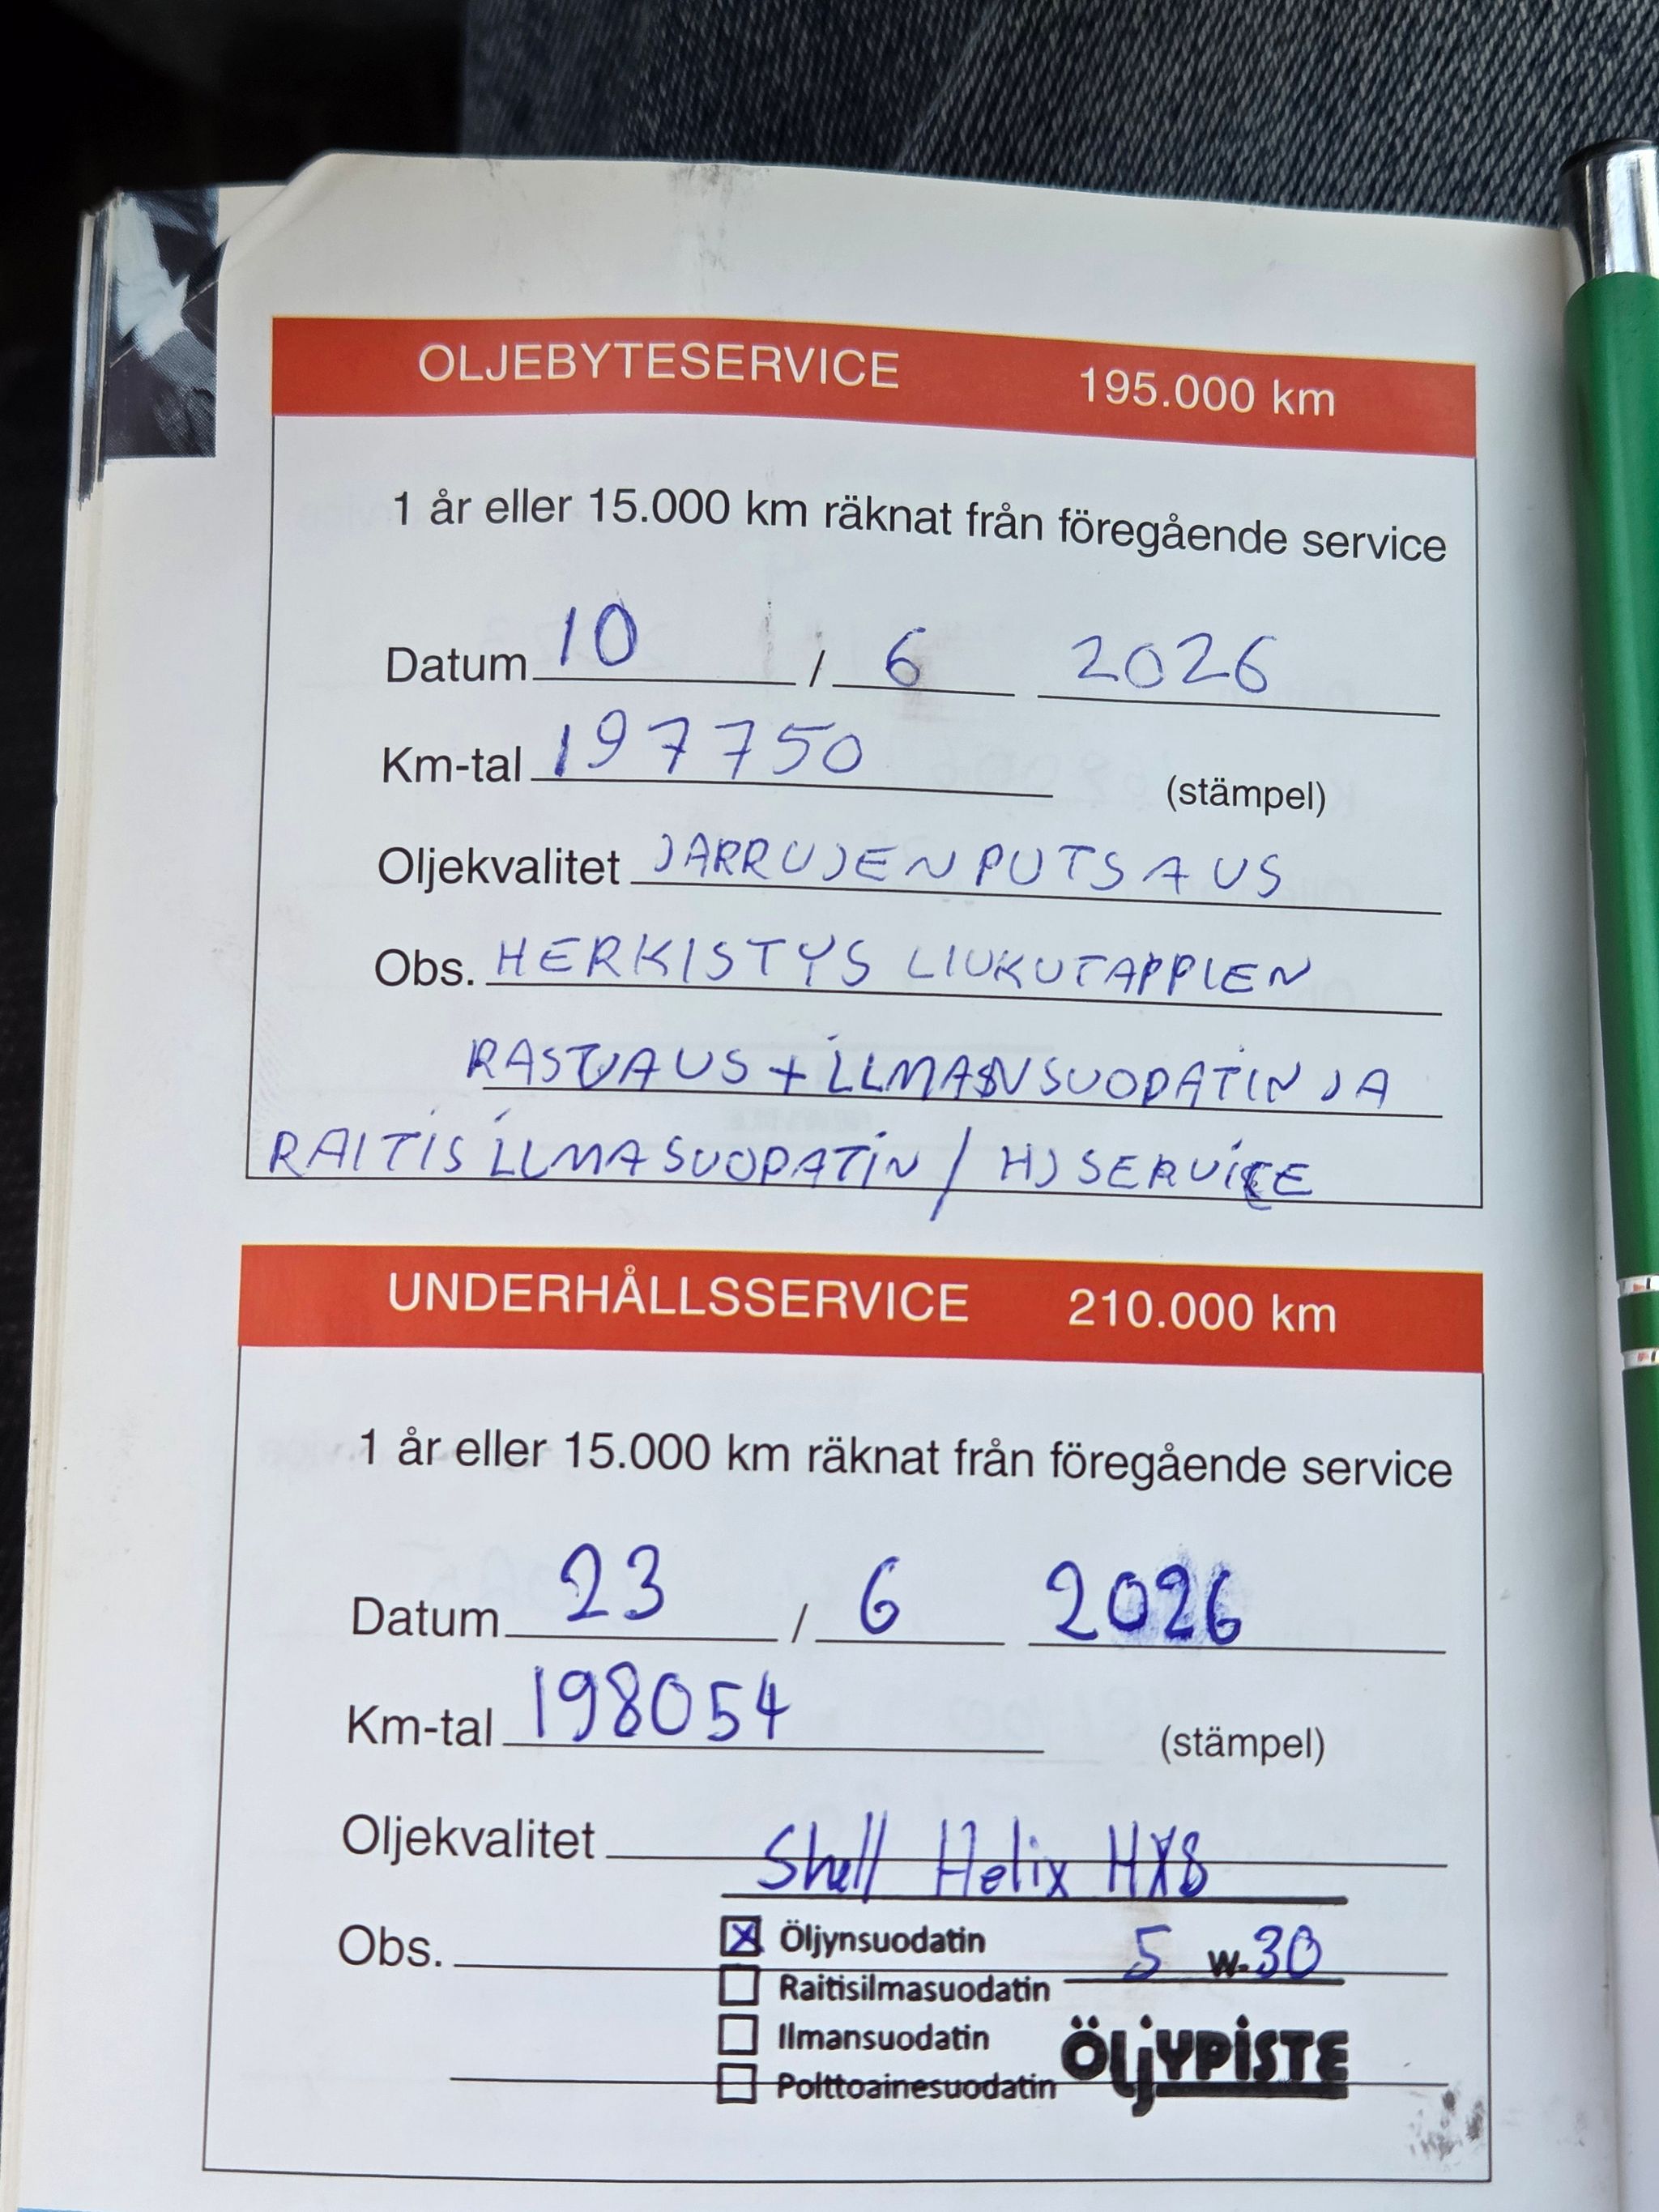 OLJEBYTESERVICE 195.000 km
1 år eller 15.000 km räknat från föregående service
Datum 10 / 6 2026
Km-tal 197750 (stämpel)
Oljekvalitet JARRUJEN PUTSAUS
Obs. HERKISTYS LIUKUTAPPIEN
RASVAUS + ILMANSUODATIN JA
RAITIS ILMASUODATIN / HJ SERVICE
UNDERHÅLLSSERVICE 210.000 km
1 år eller 15.000 km räknat från föregående service
Datum 23 / 6 2026
Km-tal 198054 (stämpel)
Oljekvalitet Shell Helix HX8
Obs. ☒ Öljynsuodatin 5 w-30
☐ Raitisilmasuodatin
☐ Ilmansuodatin ÖLJYPISTE
☐ Polttoainesuodatin